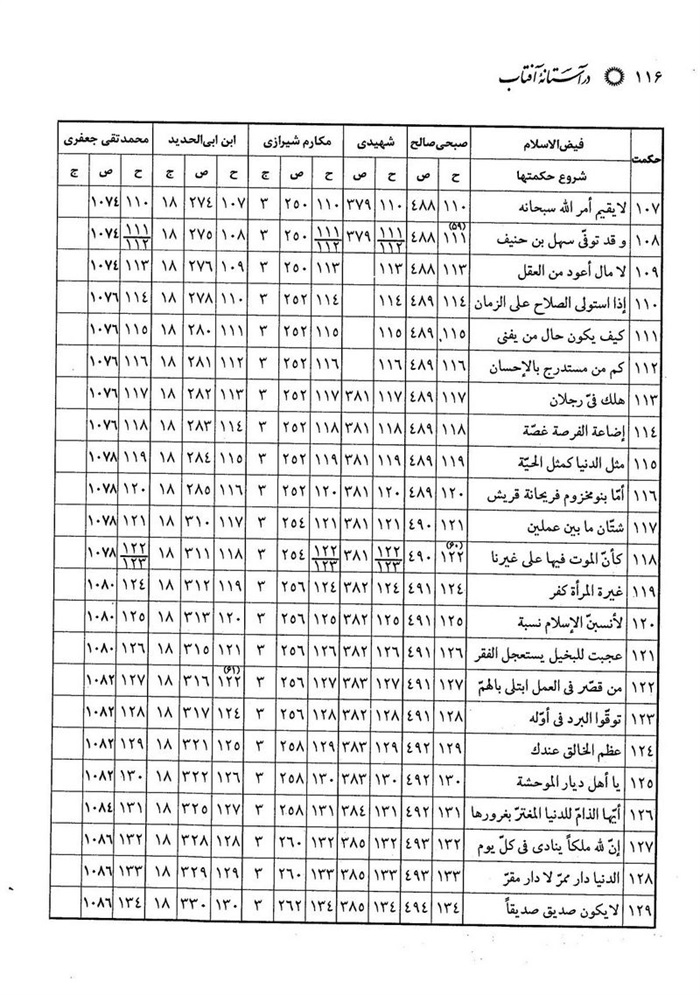 ۱۱۶ در آستانهٔ آفتاب
حکمت فیض‌الاسلام صبحی صالح شهیدی مکارم شیرازی ابن ابی‌الحدید محمدتقی جعفری
شروع حکمتها ح ص ح ص ح ص ج ح ص ج ح ص ج
۱۰۷ لا یقیم أمر الله سبحانه ۱۱۰ ۴۸۸ ۱۱۰ ۳۷۹ ۱۱۰ ۲۵۰ ۳ ۱۰۷ ۲۷۴ ۱۸ ۱۱۰ ۱۰۷۴
۱۰۸ و قد توفّی سهل بن حنیف (۵۹) ۱۱۱ ۴۸۸ ۱۱۱/۱۱۲ ۳۷۹ ۱۱۱/۱۱۲ ۲۵۰ ۳ ۱۰۸ ۲۷۵ ۱۸ ۱۱۱/۱۱۲ ۱۰۷۴
۱۰۹ لا مال أعود من العقل ۱۱۳ ۴۸۸ ۱۱۳ ۱۱۳ ۲۵۰ ۳ ۱۰۹ ۲۷۶ ۱۸ ۱۱۳ ۱۰۷۴
۱۱۰ إذا استولی الصلاح علی الزمان ۱۱۴ ۴۸۹ ۱۱۴ ۱۱۴ ۲۵۲ ۳ ۱۱۰ ۲۷۸ ۱۸ ۱۱۴ ۱۰۷۶
۱۱۱ کیف یکون حال من یفنی ۱۱۵ ۴۸۹ ۱۱۵ ۱۱۵ ۲۵۲ ۳ ۱۱۱ ۲۸۰ ۱۸ ۱۱۵ ۱۰۷۶
۱۱۲ کم من مستدرج بالإحسان ۱۱۶ ۴۸۹ ۱۱۶ ۱۱۶ ۲۵۲ ۳ ۱۱۲ ۲۸۱ ۱۸ ۱۱۶ ۱۰۷۶
۱۱۳ هلك فیّ رجلان ۱۱۷ ۴۸۹ ۱۱۷ ۳۸۱ ۱۱۷ ۲۵۲ ۳ ۱۱۳ ۲۸۲ ۱۸ ۱۱۷ ۱۰۷۶
۱۱۴ إضاعة الفرصة غصّة ۱۱۸ ۴۸۹ ۱۱۸ ۳۸۱ ۱۱۸ ۲۵۲ ۳ ۱۱۴ ۲۸۳ ۱۸ ۱۱۸ ۱۰۷۶
۱۱۵ مثل الدنیا کمثل الحیّة ۱۱۹ ۴۸۹ ۱۱۹ ۳۸۱ ۱۱۹ ۲۵۲ ۳ ۱۱۵ ۲۸۴ ۱۸ ۱۱۹ ۱۰۷۸
۱۱۶ أمّا بنومخزوم فریحانة قریش ۱۲۰ ۴۸۹ ۱۲۰ ۳۸۱ ۱۲۰ ۲۵۲ ۳ ۱۱۶ ۲۸۵ ۱۸ ۱۲۰ ۱۰۷۸
۱۱۷ شتّان ما بین عملین ۱۲۱ ۴۹۰ ۱۲۱ ۳۸۱ ۱۲۱ ۲۵۴ ۳ ۱۱۷ ۳۱۰ ۱۸ ۱۲۱ ۱۰۷۸
۱۱۸ کأنّ الموت فیها علی غیرنا (۶۰) ۱۲۲ ۴۹۰ ۱۲۲/۱۲۳ ۳۸۱ ۱۲۲/۱۲۳ ۲۵۴ ۳ ۱۱۸ ۳۱۱ ۱۸ ۱۲۲/۱۲۳ ۱۰۷۸
۱۱۹ غیرة المرأة کفر ۱۲۴ ۴۹۱ ۱۲۴ ۳۸۲ ۱۲۴ ۲۵۶ ۳ ۱۱۹ ۳۱۲ ۱۸ ۱۲۴ ۱۰۸۰
۱۲۰ لأنسبنّ الإسلام نسبة ۱۲۵ ۴۹۱ ۱۲۵ ۳۸۲ ۱۲۵ ۲۵۶ ۳ ۱۲۰ ۳۱۳ ۱۸ ۱۲۵ ۱۰۸۰
۱۲۱ عجبت للبخیل یستعجل الفقر ۱۲۶ ۴۹۱ ۱۲۶ ۳۸۲ ۱۲۶ ۲۵۶ ۳ ۱۲۱ ۳۱۵ ۱۸ ۱۲۶ ۱۰۸۰
۱۲۲ من قصّر فی العمل ابتلی بالهمّ ۱۲۷ ۴۹۱ ۱۲۷ ۳۸۳ ۱۲۷ ۲۵۶ ۳ (۶۱) ۱۲۲ ۳۱۶ ۱۸ ۱۲۷ ۱۰۸۲
۱۲۳ توقّوا البرد فی أوّله ۱۲۸ ۴۹۱ ۱۲۸ ۳۸۲ ۱۲۸ ۲۵۶ ۳ ۱۲۴ ۳۱۷ ۱۸ ۱۲۸ ۱۰۸۲
۱۲۴ عظم الخالق عندك ۱۲۹ ۴۹۲ ۱۲۹ ۳۸۳ ۱۲۹ ۲۵۸ ۳ ۱۲۵ ۳۲۱ ۱۸ ۱۲۹ ۱۰۸۲
۱۲۵ یا أهل دیار الموحشة ۱۳۰ ۴۹۲ ۱۳۰ ۳۸۳ ۱۳۰ ۲۵۸ ۳ ۱۲۶ ۳۲۲ ۱۸ ۱۳۰ ۱۰۸۲
۱۲۶ أیّها الذامّ للدنیا المغترّ بغرورها ۱۳۱ ۴۹۲ ۱۳۱ ۳۸۴ ۱۳۱ ۲۵۸ ۳ ۱۲۷ ۳۲۵ ۱۸ ۱۳۱ ۱۰۸۴
۱۲۷ إنّ لله ملکاً ینادی فی کلّ یوم ۱۳۲ ۴۹۳ ۱۳۲ ۳۸۵ ۱۳۲ ۲۶۰ ۳ ۱۲۸ ۳۲۸ ۱۸ ۱۳۲ ۱۰۸۶
۱۲۸ الدنیا دار ممرّ لا دار مقرّ ۱۳۳ ۴۹۳ ۱۳۳ ۳۸۵ ۱۳۳ ۲۶۰ ۳ ۱۲۹ ۳۲۹ ۱۸ ۱۳۳ ۱۰۸۶
۱۲۹ لا یکون صدیق صدیقاً ۱۳۴ ۴۹۴ ۱۳۴ ۳۸۵ ۱۳۴ ۲۶۲ ۳ ۱۳۰ ۳۳۰ ۱۸ ۱۳۴ ۱۰۸۶